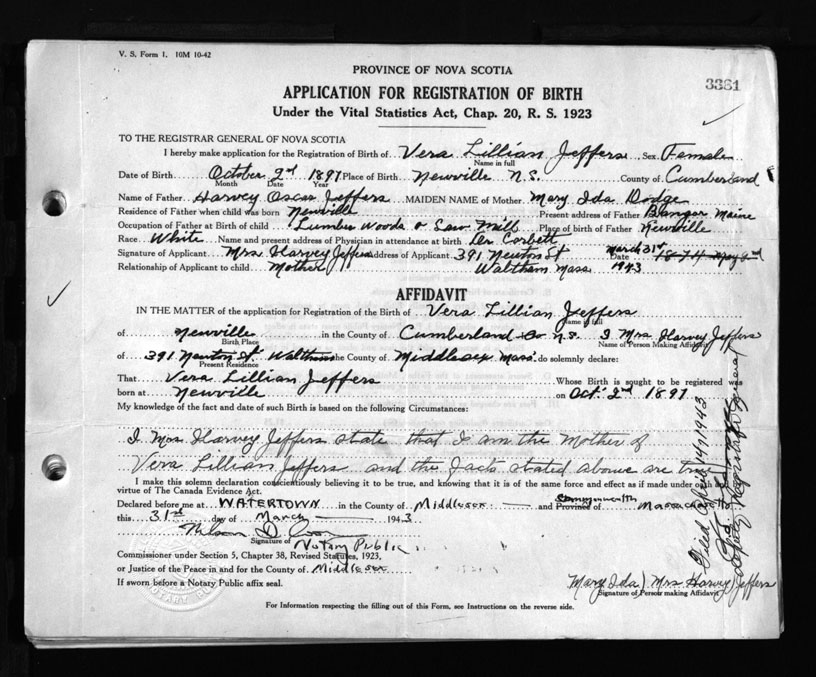 V. S. Form 1. 10M 10-42
PROVINCE OF NOVA SCOTIA
3381
APPLICATION FOR REGISTRATION OF BIRTH
Under the Vital Statistics Act, Chap. 20, R. S. 1923
TO THE REGISTRAR GENERAL OF NOVA SCOTIA
I hereby make application for the Registration of Birth of Vera Lillian Jeffers Sex Female
Name in full
Date of Birth October 2nd 1897 Place of Birth Newville N.S. County of Cumberland
Month Date Year
Name of Father Harvey Oscar Jeffers MAIDEN NAME of Mother Mary Ida Dodge
Residence of Father when child was born Newville Present address of Father Bangor Maine
Occupation of Father at Birth of child Lumber Woods & Saw Mill Place of birth of Father Newville
Race White Name and present address of Physician in attendance at birth Der Corbett
Signature of Applicant Mrs Harvey Jeffers Address of Applicant 391 Newton St Date March 31st 1874 May 2nd
Relationship of Applicant to child Mother Waltham Mass 1943
AFFIDAVIT
IN THE MATTER of the application for Registration of the Birth of Vera Lillian Jeffers
Name in full
of Newville in the County of Cumberland Co N.S. I Mrs Harvey Jeffers
Birth Place Name of Person Making Affidavit
of 391 Newton St Waltham in the County of Middlesex Mass. do solemnly declare:
Present Residence
That Vera Lillian Jeffers Whose Birth is sought to be registered was
born at Newville on Oct. 2nd 1897
My knowledge of the fact and date of such Birth is based on the following Circumstances:
I Mrs Harvey Jeffers state that I am the Mother of
Vera Lillian Jeffers and the facts stated above are true
I make this solemn declaration conscientiously believing it to be true, and knowing that it is of the same force and effect as if made under oath and
virtue of The Canada Evidence Act.
Declared before me at WATERTOWN in the County of Middlesex and Province of Commonwealth Massachusetts
this 31st day of March 1943
Signature of Notary Public
Commissioner under Section 5, Chapter 38, Revised Statutes, 1923,
or Justice of the Peace in and for the County of Middlesex
If sworn before a Notary Public affix seal.
Mary Ida) Mrs Harvey) Jeffers
Signature of Person making Affidavit
For Information respecting the filling out of this Form, see Instructions on the reverse side.
Filed April 14/1943
Deputy Registrar General